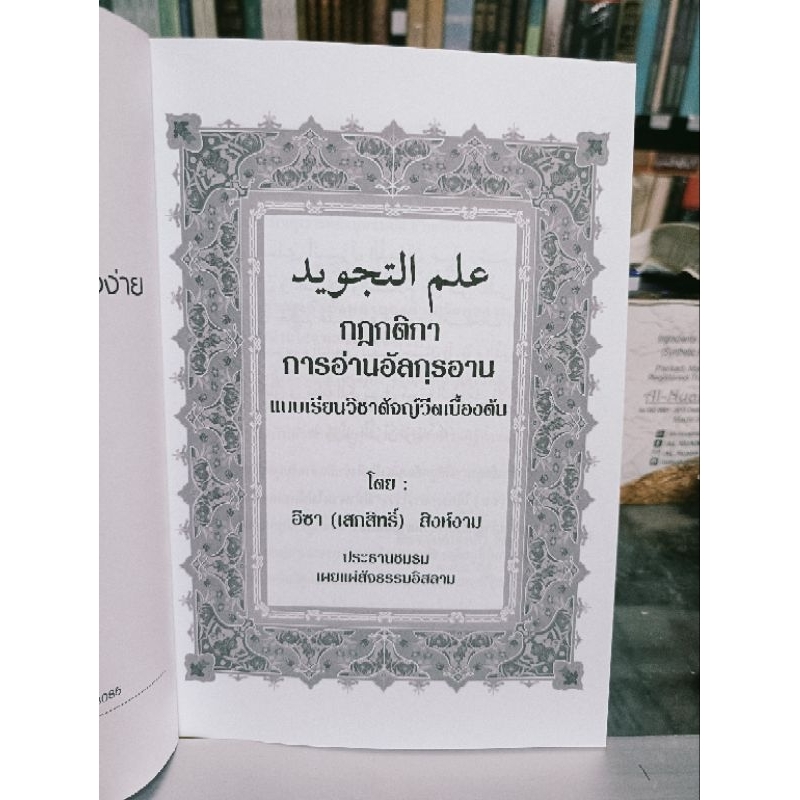 علم التجويد
กฎกติกา
การอ่านอัลกุรอาน
แบบเรียนวิชาตัจญ์วีดเบื้องต้น
โดย :
อีซา (เสกสิทธิ์) สิงห์งาม
ประธานชมรม
เผยแผ่สัจธรรมอิสลาม
ง่าย